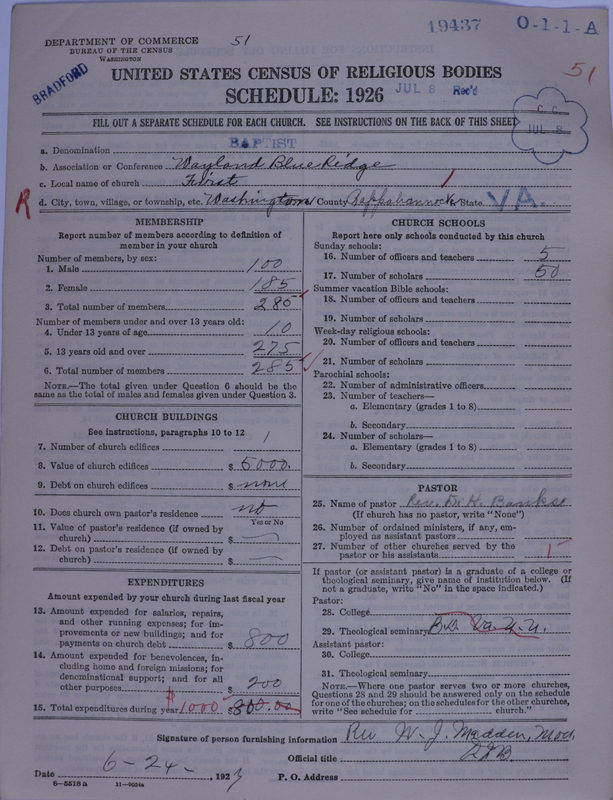 19437 O-1-1-A
DEPARTMENT OF COMMERCE 51
BUREAU OF THE CENSUS
WASHINGTON
BRADFORD
51
UNITED STATES CENSUS OF RELIGIOUS BODIES
SCHEDULE: 1926 JUL 8 Rec'd
C. C.
JUL 8
FILL OUT A SEPARATE SCHEDULE FOR EACH CHURCH. SEE INSTRUCTIONS ON THE BACK OF THIS SHEET
a. Denomination BAPTIST
b. Association or Conference Wayland Blue Ridge
c. Local name of church First
R d. City, town, village, or township, etc. Washington County Rappahannock State VA.
MEMBERSHIP
Report number of members according to definition of
member in your church
Number of members, by sex:
1. Male 100
2. Female 185
3. Total number of members 285
Number of members under and over 13 years old:
4. Under 13 years of age 10
5. 13 years old and over 275
6. Total number of members 285
NOTE.—The total given under Question 6 should be the
same as the total of males and females given under Question 3.
CHURCH BUILDINGS
See instructions, paragraphs 10 to 12
7. Number of church edifices 1
8. Value of church edifices $ 5000.
9. Debt on church edifices $ none
10. Does church own pastor's residence? no
Yes or No
11. Value of pastor's residence (if owned by
church) $ —
12. Debt on pastor's residence (if owned by
church) $ —
EXPENDITURES
Amount expended by your church during last fiscal year
13. Amount expended for salaries, repairs,
and other running expenses; for im-
provements or new buildings; and for
payments on church debt $ 800
14. Amount expended for benevolences, in-
cluding home and foreign missions; for
denominational support; and for all
other purposes $ 200
15. Total expenditures during year $1000 $ 300.00
CHURCH SCHOOLS
Report here only schools conducted by this church
Sunday schools:
16. Number of officers and teachers 5
17. Number of scholars 50
Summer vacation Bible schools:
18. Number of officers and teachers
19. Number of scholars
Week-day religious schools:
20. Number of officers and teachers
21. Number of scholars
Parochial schools:
22. Number of administrative officers
23. Number of teachers—
a. Elementary (grades 1 to 8)
b. Secondary
24. Number of scholars—
a. Elementary (grades 1 to 8)
b. Secondary
PASTOR
25. Name of pastor Rev. D. K. Banks
(If church has no pastor, write "None")
26. Number of ordained ministers, if any, em-
ployed as assistant pastors
27. Number of other churches served by the
pastor or his assistants 1
If pastor (or assistant pastor) is a graduate of a college or
theological seminary, give name of institution below. (If
not a graduate, write "No" in the space indicated.)
Pastor:
28. College
29. Theological seminary B.D. Va. U.U.
Assistant pastor:
30. College
31. Theological seminary
NOTE.—Where one pastor serves two or more churches,
Questions 28 and 29 should be answered only on the schedule
for one of the churches; on the schedules for the other churches,
write "See schedule for church."
Signature of person furnishing information Rev W. J. Madden, Mod.
Official title
Date 6-24-, 1927 P. O. Address
8-5518a 11-9024a